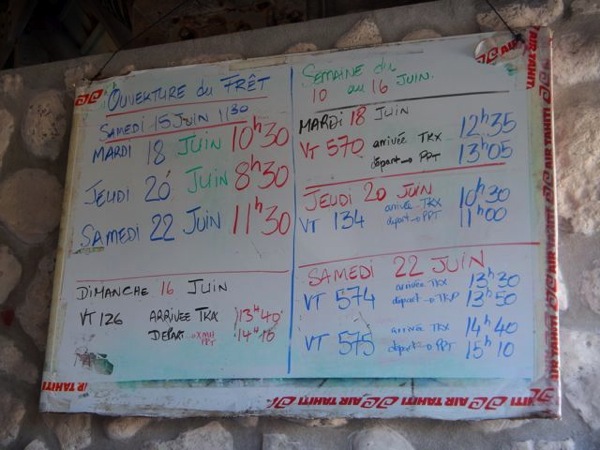 OUVERTURE du FRÊT
SAMEDI 15 JUIN 11:30
MARDI 18 JUIN 10h30
JEUDI 20 JUIN 8h30
SAMEDI 22 JUIN 11h30
DIMANCHE 16 JUIN
VT 126 ARRIVEE TKX 13h40
DEPART → XMH PPT 14h10
SEMAINE du
10 au 16 JUIN.
MARDI 18 JUIN
VT 570 arrivée TKX 12h35
départ → PPT 13h05
JEUDI 20 JUIN
VT 134 arrivée TKX 10h30
départ → PPT 11h00
SAMEDI 22 JUIN
VT 574 arrivée TKX 13h30
départ → TKP 13h50
VT 575 arrivée TKX 14h40
départ → PPT 15h10
AIR TAHITI
AIR TAHITI
AIR TAHITI
AIR TAHITI
AIR TAHITI